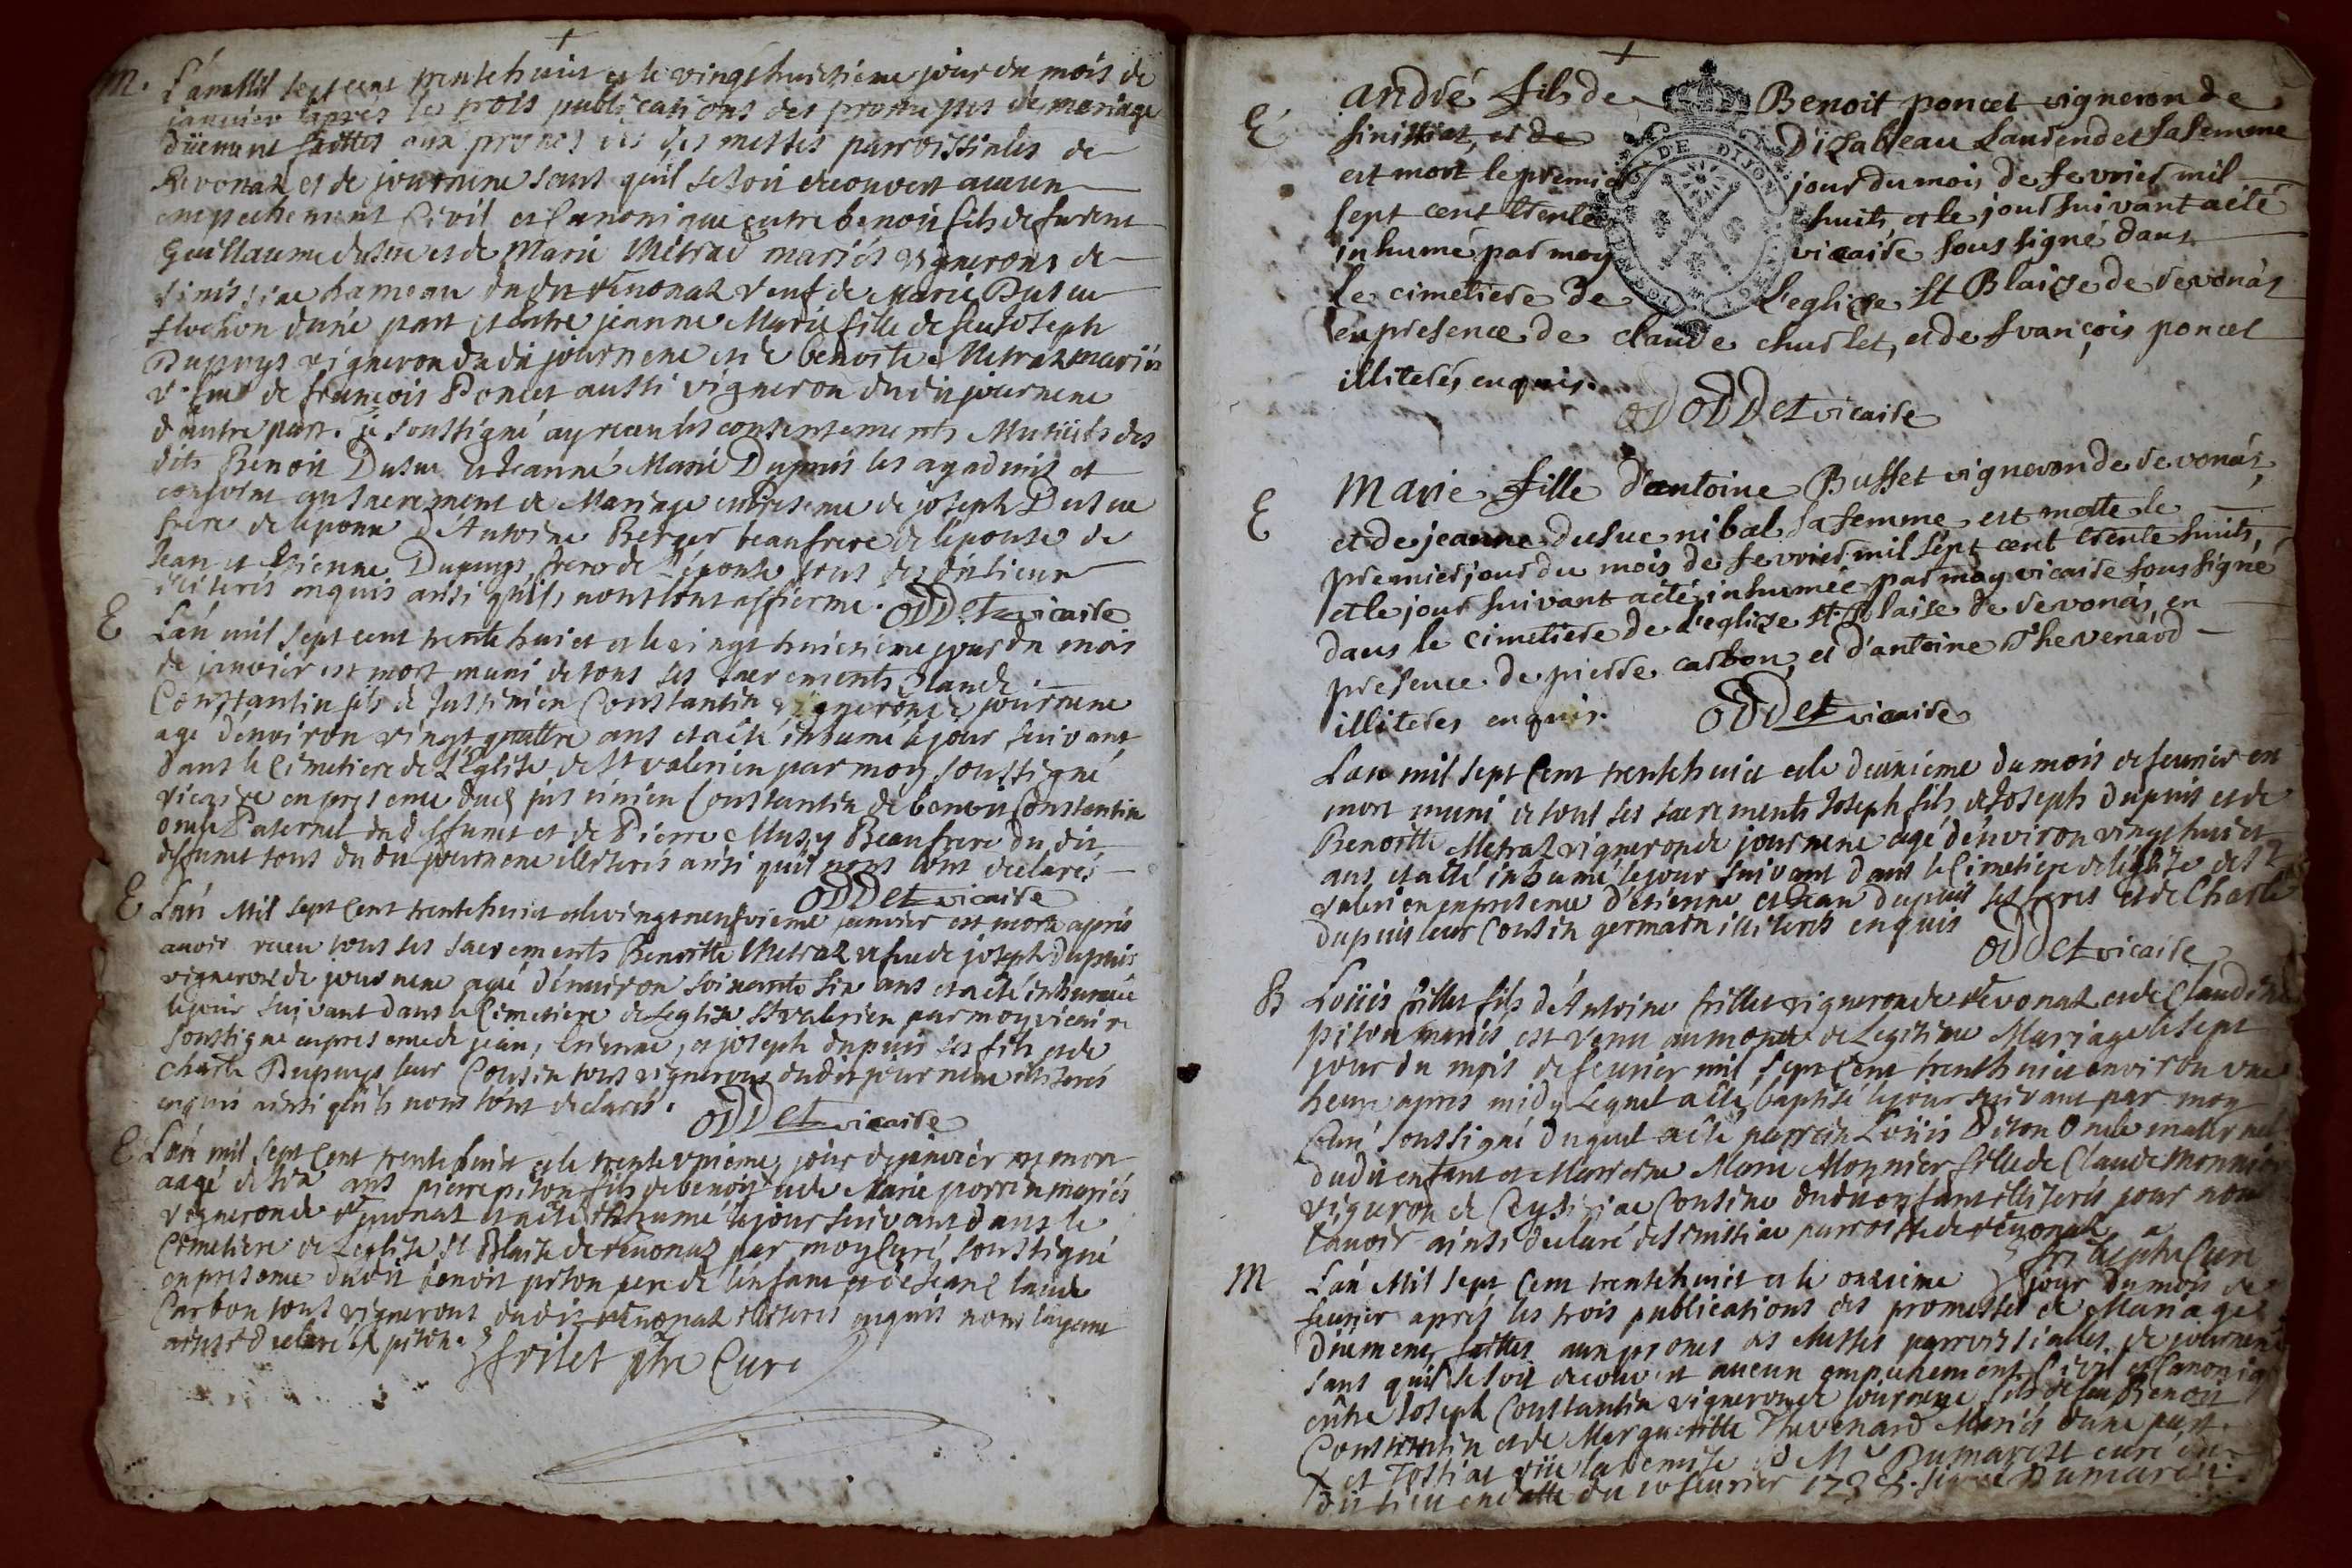 m. L'an Mil sept cent trente huict et le vingt huictiéme jour du mois de
janvier apres les trois publications des promesses de mariage
düement faittes aux prones des messes parroissiales de
Revonas et de journene sans quil se soit decouvert aucun
empechement Civil et Canonique entre benoit fils de furent
Guillaume dusuc et de Marie Métrad mariés vignerons de
sinissiac hameau dudt revonaz veuf de Marie Dusuc
d'une part et entre jeanne Marie fille de feu Joseph
Dupuys vigneron dudit journene et de benoite Metraz mariés
veuve de françois Poncet aussi vigneron dudit journene
d'autre part. je soussigné ay receu les consentements Mutuels des
dits Benoit Dusuc et Jeanne Marie Dupuis les ay admis et
conferé au sacrement de Mariage en presence de joseph Dusuc
frere de lepoux d'Antoine Berger beaufrere de l'epouse de
Jean et Etienne Dupuys freres de l'épouse tous des dits lieux
illiterés enquis ainsi quils nous l'ont affiermé. Oddet vicaire
E L'an mil sept cent trente huict et le vingt huictiéme jour du mois
de janvier est mort muni de tous ses sacrements Claude
Constantin fils de Justinien Constantin vigneron de journene
agé d'environ vingt quattre ans et a été inhumé le jour suivant
dans le Cimetiere de L'Eglise de St valerien par moy soussigné
vicaire en presence dud justinien Constantin de benoit Constantin
oncle Paternel du deffunct et de Pierre Musy Beaufrere du dit
deffunct tous du dit journene illiterés ainsi quils nous l'ont declarés
Oddet vicaire
E L'an Mil sept Cent trente huict et le vingt neufvieme janvier est morte aprés
avoir receu tous ses sacrements Benoitte Metraz vefve de joseph dupuis
vigneron de journene agée d'environ soixante six ans et a été inhumée
le jour suivant dans le Cimetiere de Leglise St valerien par moy vicaire
soussigné en presence de jean, Etienne, et joseph dupuis ses fils et de
Charle Dupuys leur Cousin tous vignerons dudit journene illiterés
enquis ainsi qu'ils nous l'ont declarés.
Oddet vicaire
E L'an mil sept Cent trente huict et le trente unieme jour de janvier est mort
aagé de six ans pierre piton fils de benoit et de Marie perrin mariés
vigneron de revonaz et a été inhumé le jour suivant dans le
Cimetiere de Leglise St Blaise de revonaz par moy Curé soussigné
en presence dudit benoit piton pere de l'enfant et de Jean Claude
Carbon tous vignerons dudit revonaz illiterés enquis nous layant
ainsi declaré piton.
frilet ptre Curé
E André fils de Benoit poncet vigneron de
sinissiat, et de D'izabeau Laurendet sa femme
est mort le premier jour du mois de fevrier mil
sept cent trente huit, et le jour suivant a été
inhumé par moy vicaire sous signé dans
le cimetiere de L'eglize St Blaize de revonas
en presence de claude churlet, et de françois poncet
illiterés enquis.
Oddet vicaire
E Marie fille d'antoine Busset vigneron de revonás,
et de jeanne dusuc nibal sa femme est motte le
premier jour du mois de fevrier mil sept cent trente huit,
et le jour suivant a été inhumée par moy vicaire sous signé
dans le cimetiere de L'eglize St Blaise de revonas, en
presence de pierre carbon, et d'antoine Thevenard
illiteres enquis. Oddet vicaire
L'an mil sept Cent trente huict et le deuxieme du mois de feuvrier est
mort muni de tous ses sacrements Joseph fils de Joseph dupuis et de
Benoitte Metraz vigneron de journene agé d'environ vingt huict
ans et a été inhumé le jour suivant dans le Cimetiere de l'église de St
valerien en presence d'etienne et Jean dupuis ses freres et de Charle
dupuis leur Cousin germain illiterés enquis
Oddet vicaire
B Loüis frillet fils d'Antoine frillet vigneron de revonaz et de Claudine
piton mariés est venu au monde de Legitime Mariage le sept
jour du mois de feuvrier mil sept Cent trente huict environ une
heure apres midy Lequel a été baptisé le jour suivant par moy
Curé soussigné duquel a été parrein Loüis Piton Oncle maternel
dudit enfant et Marreine Marie Monnier fille de Claude monnier
vigneron de Ceysiriac Cousine dudit enfant illiterés pour nous
l'avoir ainsi declaré de sinissiac parroisse de revonaz
frilet ptre Curé
M L'an Mil sept Cent trente huict et le onzieme jour du mois de
feuvrier aprés les trois publications des promesses de Mariage
düement faittes aux prones des Messes parroissialles de journene
sans quil se soit decouvert aucun empechement Civil et Canonique
entre Joseph Constantin vigneron de journene fils de feu Benoit
Constantin et de Marguerite Thevenard Mariés d'une part
X et Tossiat vüe la remise de Mr Dumarest curé du
dit lieu en datte du 10 feuvrier 1738. signé Dumarest.